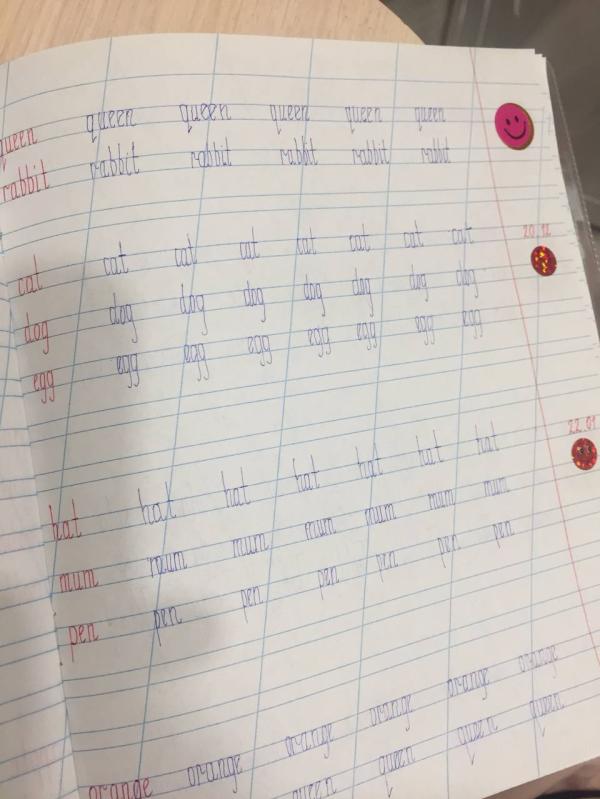 queen queen queen queen queen queen
rabbit rabbit rabbit rabbit rabbit rabbit
cat cat cat cat cat cat cat cat 20.12
dog dog dog dog dog dog dog dog
egg egg egg egg egg egg egg egg
hat hat hat hat hat hat hat 22.01
mum mum mum mum mum mum mum
pen pen pen pen pen pen pen
orange orange orange orange orange orange
queen queen queen queen